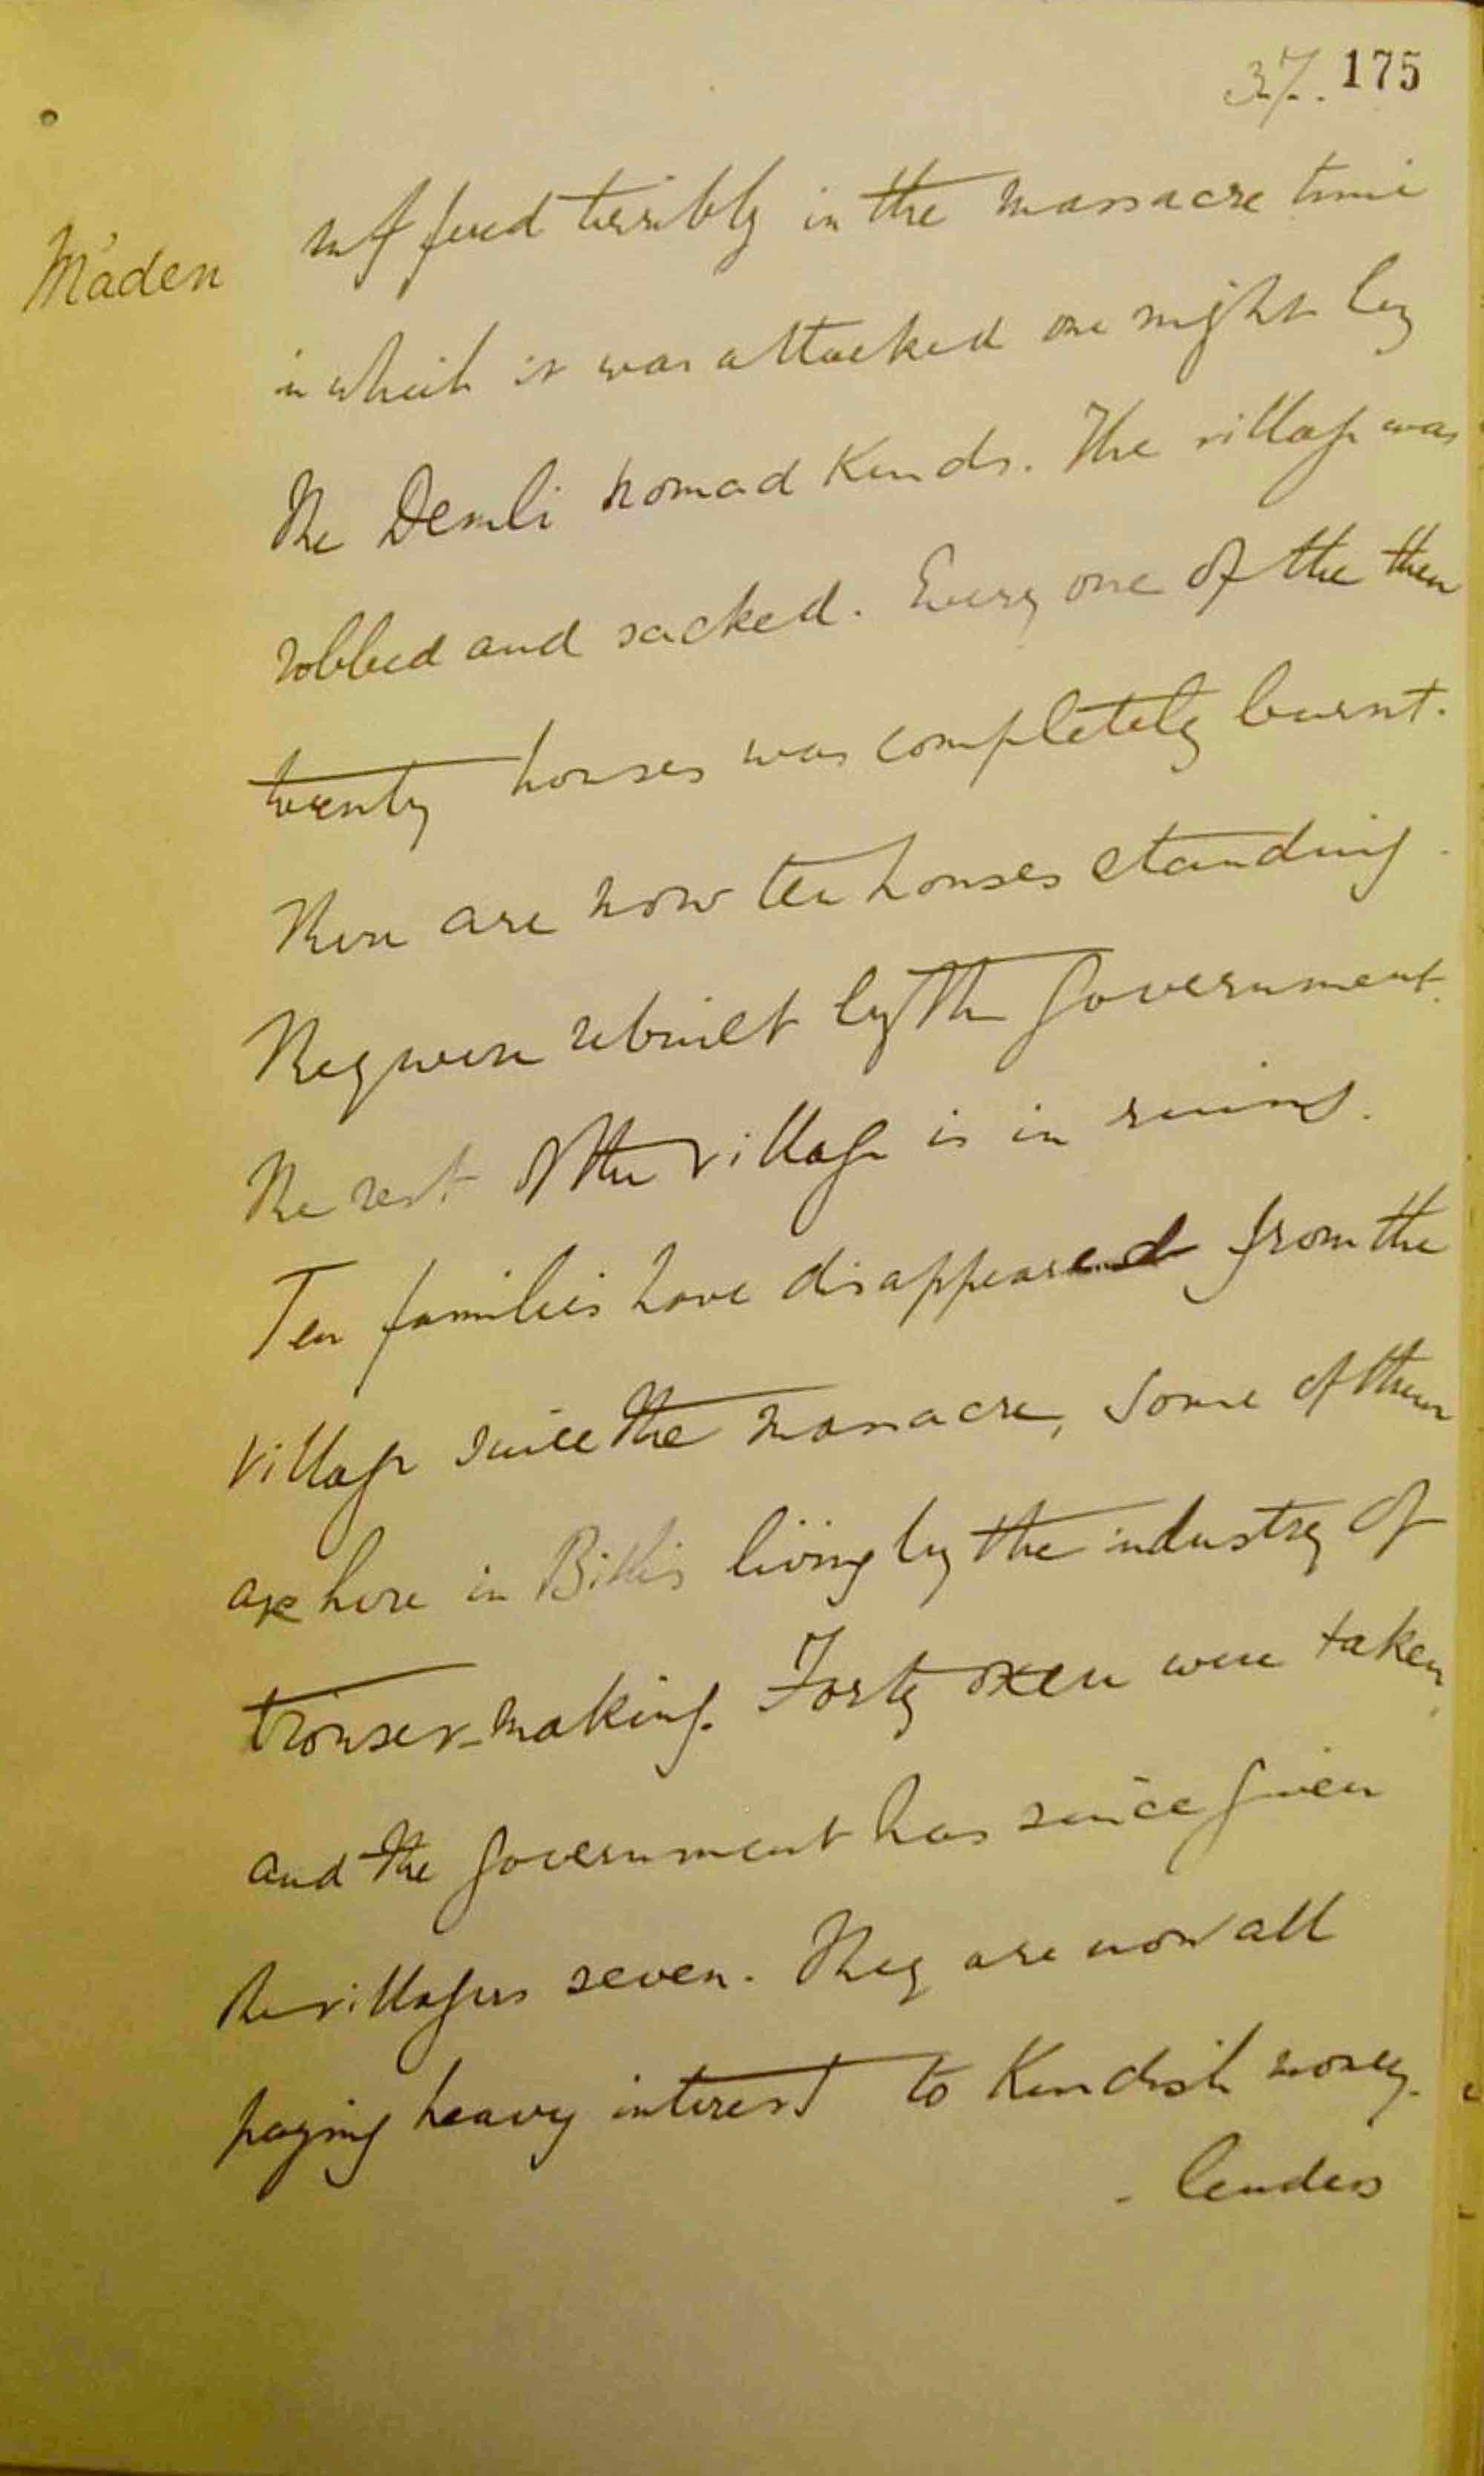 37. 175
Maden
suffered terribly in the massacre time
in which it was attacked one night by
the Demli nomad Kurds. The village was
robbed and sacked. Every one of the then
twenty houses was completely burnt.
There are now ten houses standing.
They were rebuilt by the Government.
The rest of the village is in ruins.
Ten families have disappeared from the
village since the massacre, some of them
are here in Bitlis living by the industry of
trouser-making. Forty oxen were taken,
and the Government has since given
the villagers seven. They are now all
paying heavy interest to Kurdish money-
- lenders